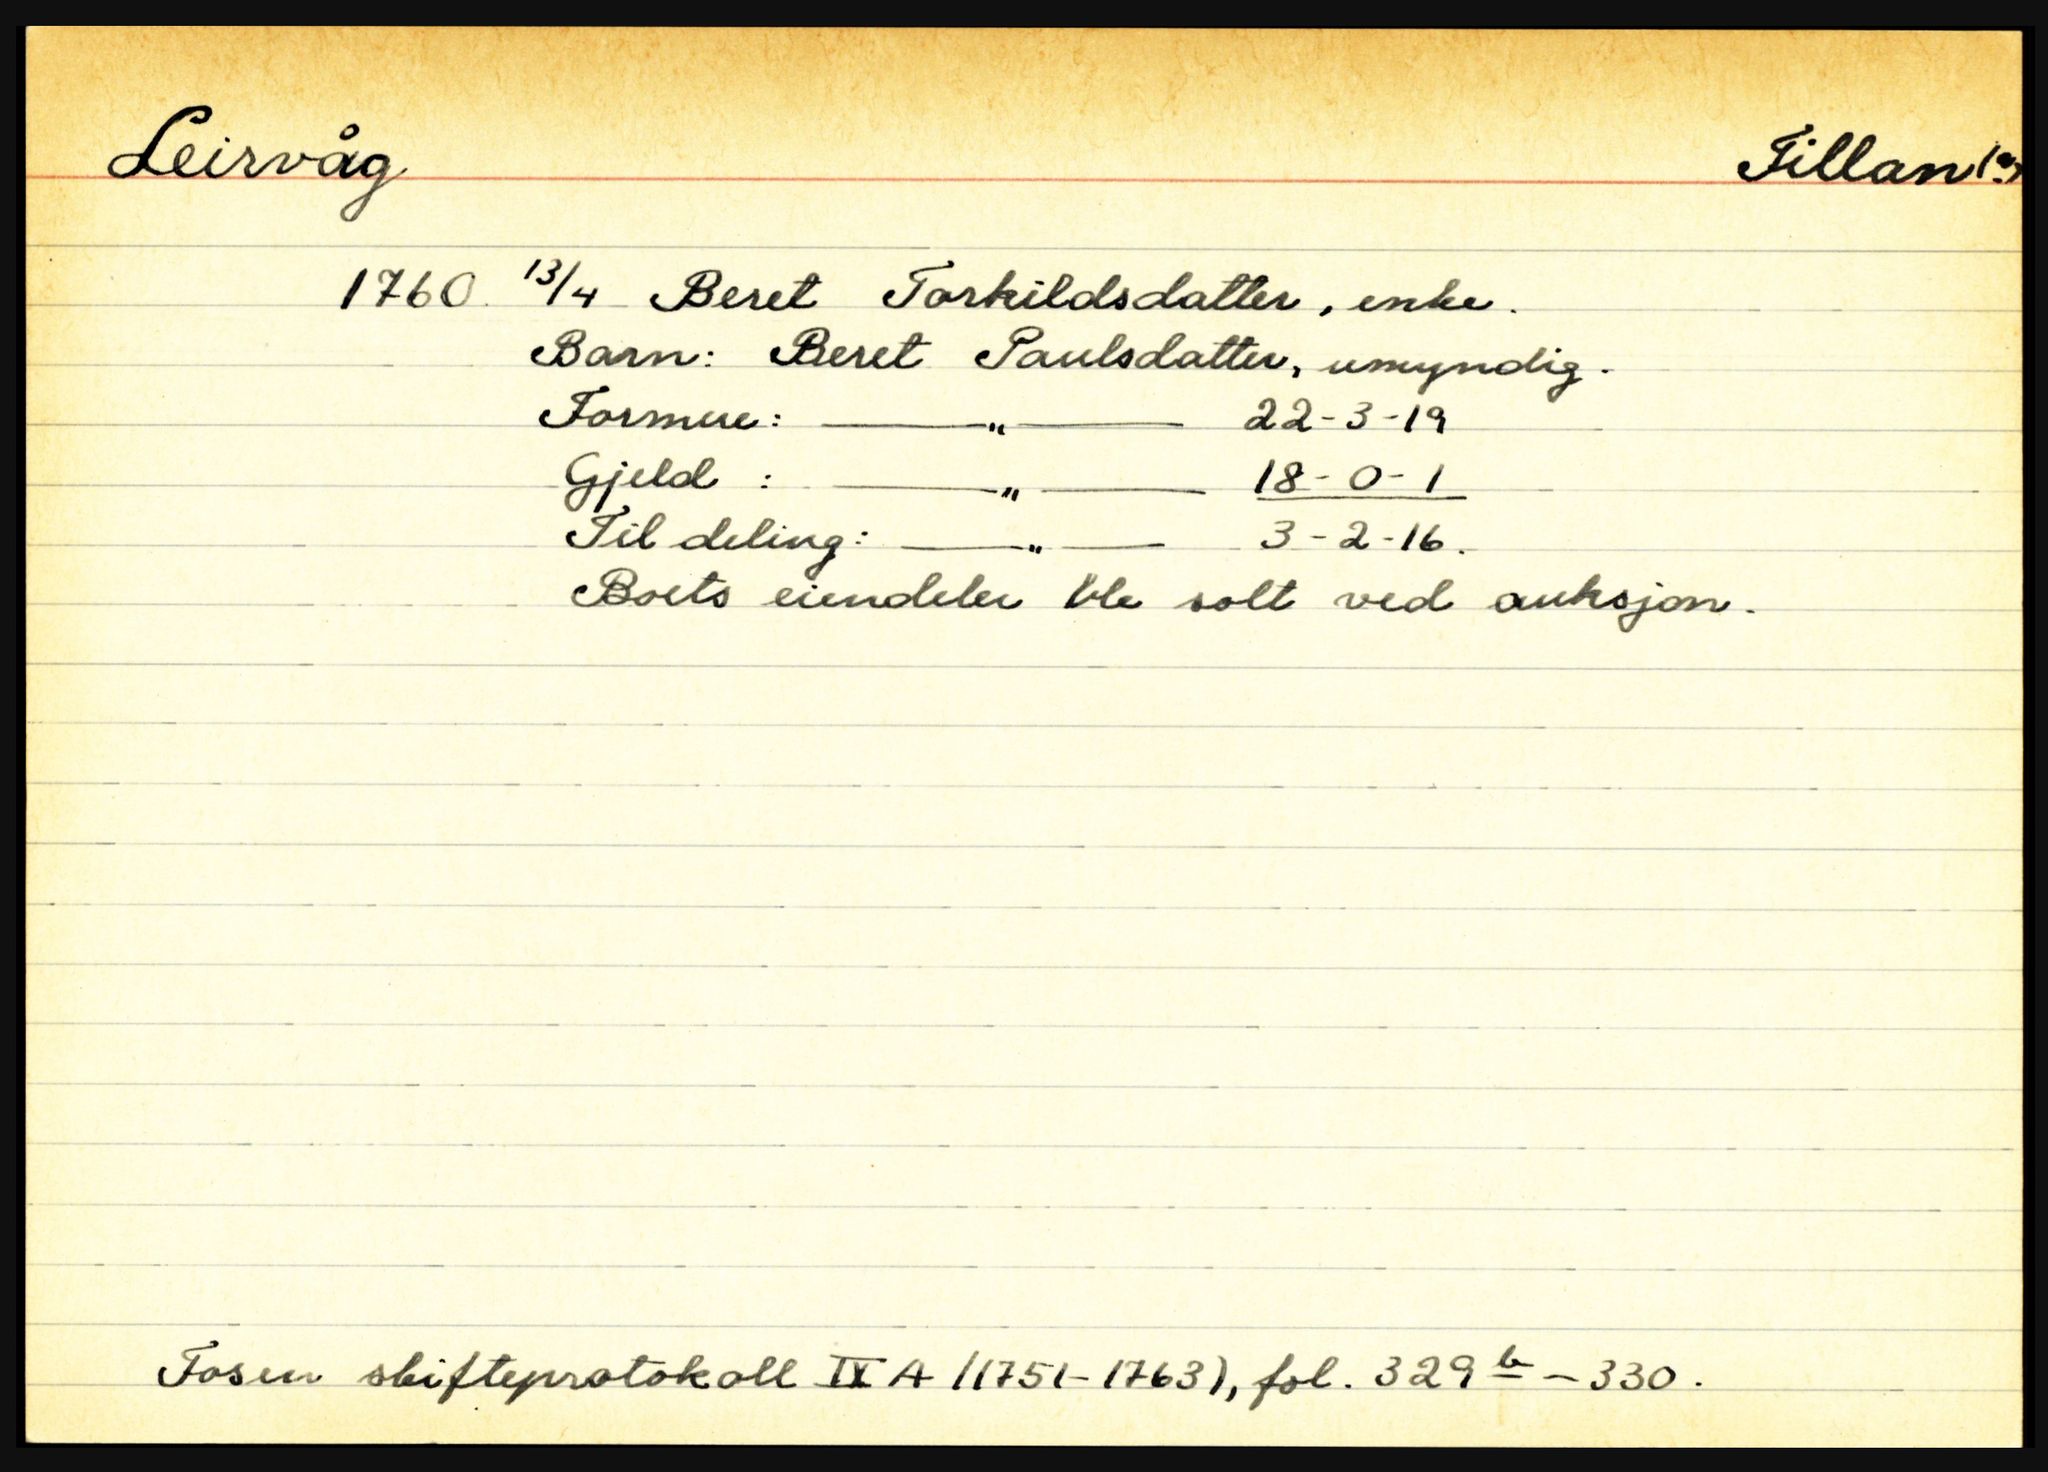 Leirvåg
Tillan
1760 13/4 Beret Torkildsdatter, enke.
Barn: Beret Paulsdatter, umyndig.
Formue: — " — 22-3-19
Gjeld : — " — 18-0-1
Til deling: — " — 3-2-16.
Boets eiendeler ble solt ved auksjon.
Fosen skifteprotokoll IX A (1751-1763), fol. 329 b - 330.